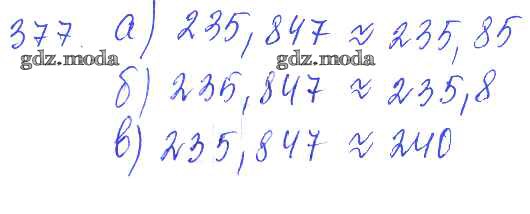 377. а) 235,847 ≈ 235,85
gdz.moda gdz.moda
б) 235,847 ≈ 235,8
в) 235,847 ≈ 240